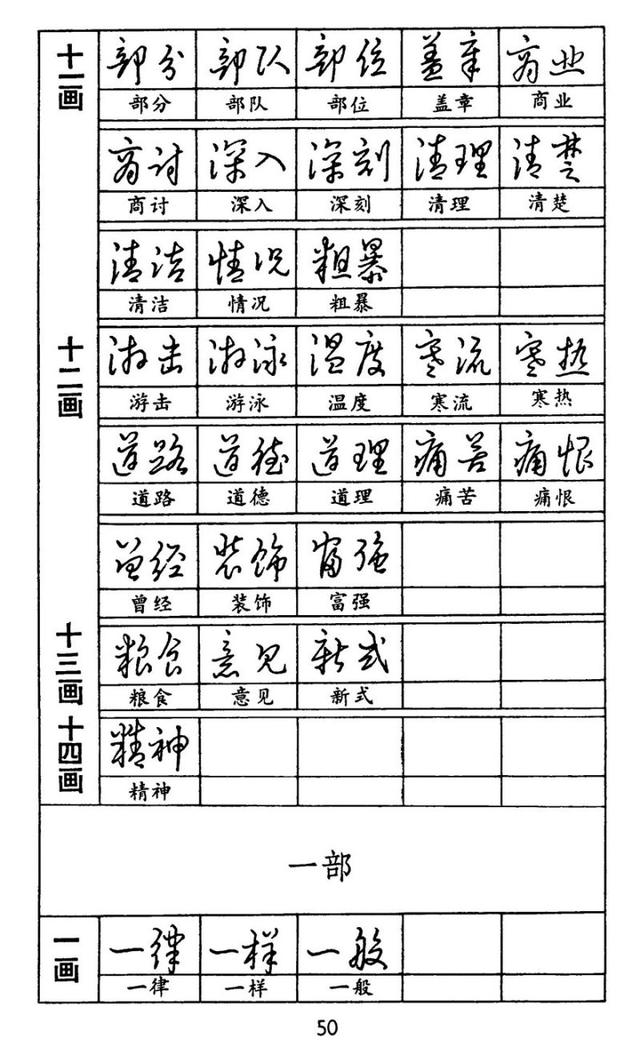 十一画
部分 部队 部位 盖章 商业
部分 部队 部位 盖章 商业
商讨 深入 深刻 清理 清楚
商讨 深入 深刻 清理 清楚
清洁 情况 粗暴
清洁 情况 粗暴
十二画
游击 游泳 温度 寒流 寒热
游击 游泳 温度 寒流 寒热
道路 道德 道理 痛苦 痛恨
道路 道德 道理 痛苦 痛恨
曾经 装饰 富强
曾经 装饰 富强
十三画
粮食 意见 新式
粮食 意见 新式
十四画
精神
精神
一部
一画
一律 一样 一般
一律 一样 一般
50